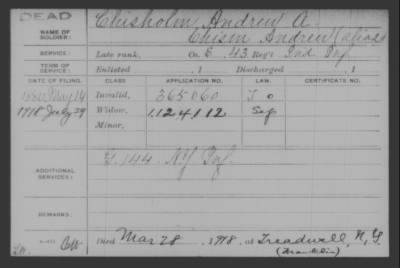 DEAD
NAME OF SOLDIER: Chisholm, Andrew A.
Chism Andrew (alias)
SERVICE: Late rank, Co. 5, 43 Reg't Ind Inf.
TERM OF SERVICE: Enlisted , 1 Discharged , 1
DATE OF FILING. CLASS APPLICATION NO. LAW. CERTIFICATE NO.
1880 May 14 Invalid, 365060
1918 July 29 Widow, 1124112
Minor,
ADDITIONAL SERVICES: G. 144. NY Inf.
REMARKS:
Died Mar 28 1918, at Treadwell, N.Y.
(Franklin)